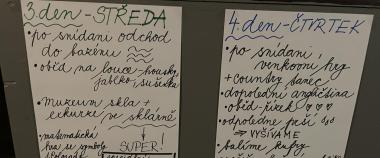 3.den - STŘEDA
• po snídani odchod
do bazénu
• oběd na louce - housky,
jablko, sušenka
• muzeum skla +
exkurze ve sklárně
• matematická
SUPER!
hra se symboly
4.den - ČTVRTEK
• po snídani
venkovní hry
+ country tanec
• dopolední angličtina
• oběd - řízek
• odpoledne prší
⇒ VYŠÍVÁME
• balíme kufry